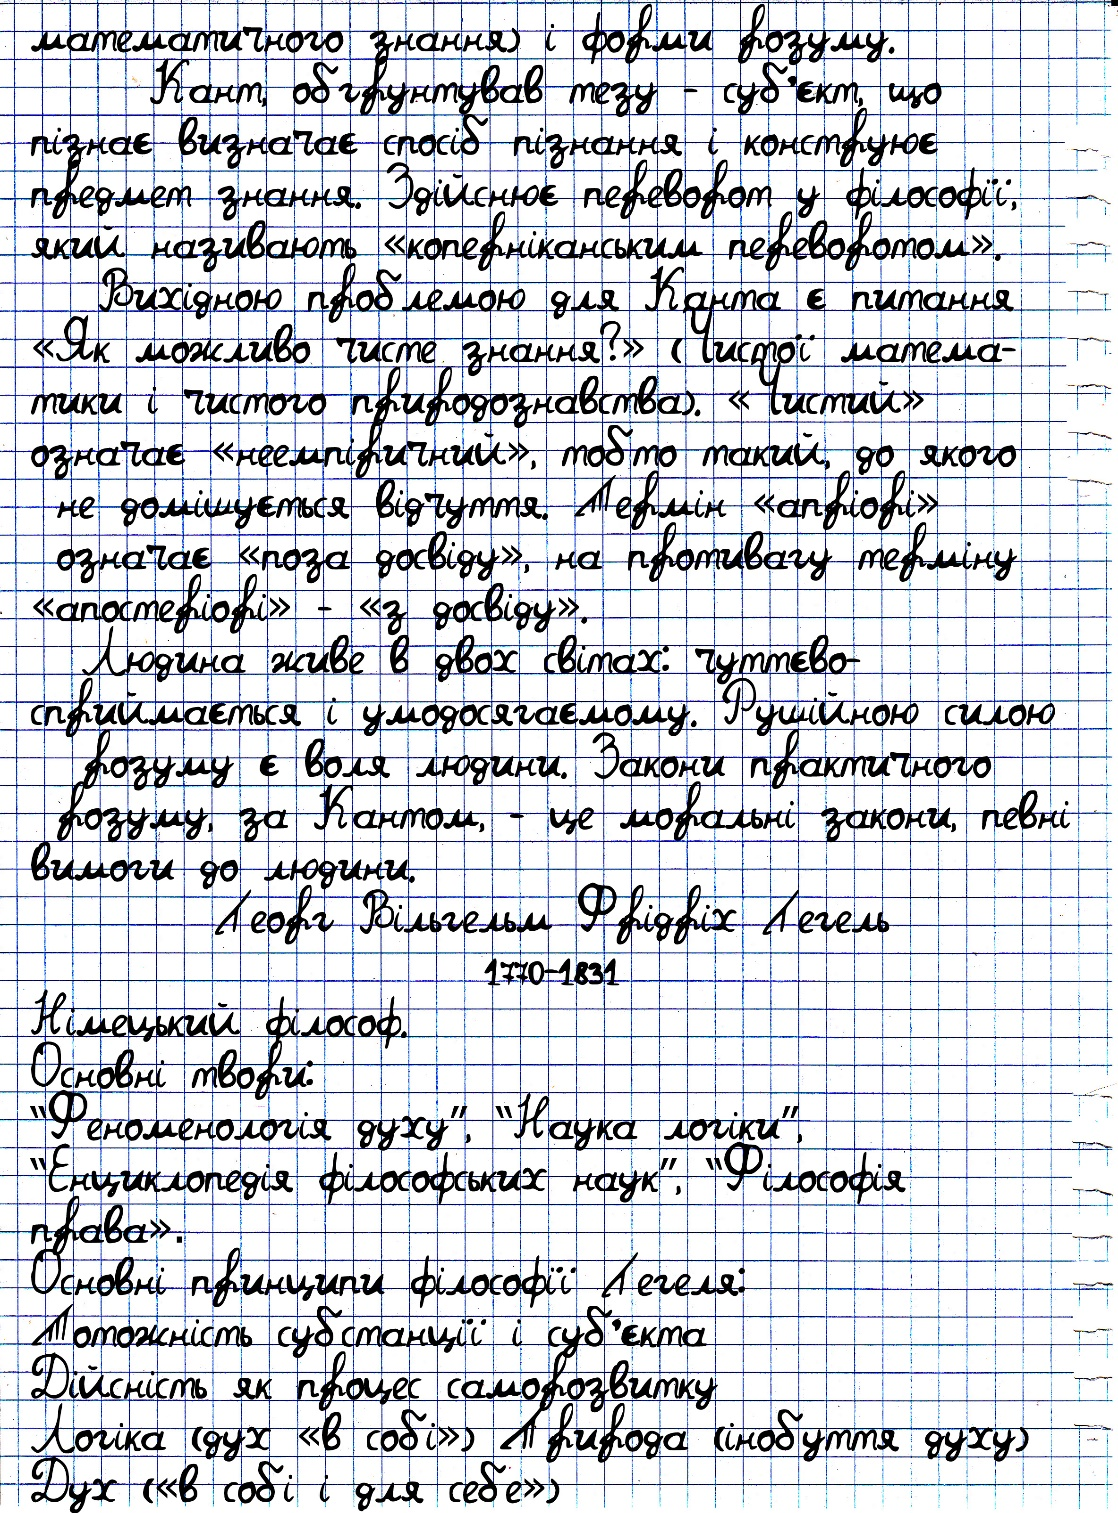 математичного знання) і форми розуму.
Кант, обґрунтував тезу - суб'єкт, що
пізнає визначає спосіб пізнання і конструює
предмет знання. Здійснює переворот у філософії,
який називають «коперніканським переворотом».
Вихідною проблемою для Канта є питання
«Як можливо чисте знання?» (Чистої матема-
тики і чистого природознавства). «Чистий»
означає «неемпіричний», тобто такий, до якого
не домішується відчуття. Термін «апріорі»
означає «поза досвіду», на противагу терміну
«апостеріорі» - «з досвіду».
Людина живе в двох світах: чуттєво-
сприймається і умодосягаємому. Рушійною силою
розуму є воля людини. Закони практичного
розуму, за Кантом, - це моральні закони, певні
вимоги до людини.
Георг Вільгельм Фрідріх Гегель
1770-1831
Німецький філософ.
Основні твори:
"Феноменологія духу", "Наука логіки",
"Енциклопедія філософських наук", "Філософія
права».
Основні принципи філософії Гегеля:
Тотожність субстанції і суб'єкта
Дійсність як процес саморозвитку
Логіка (дух «в собі») Природа (інобуття духу)
Дух («в собі і для себе»)